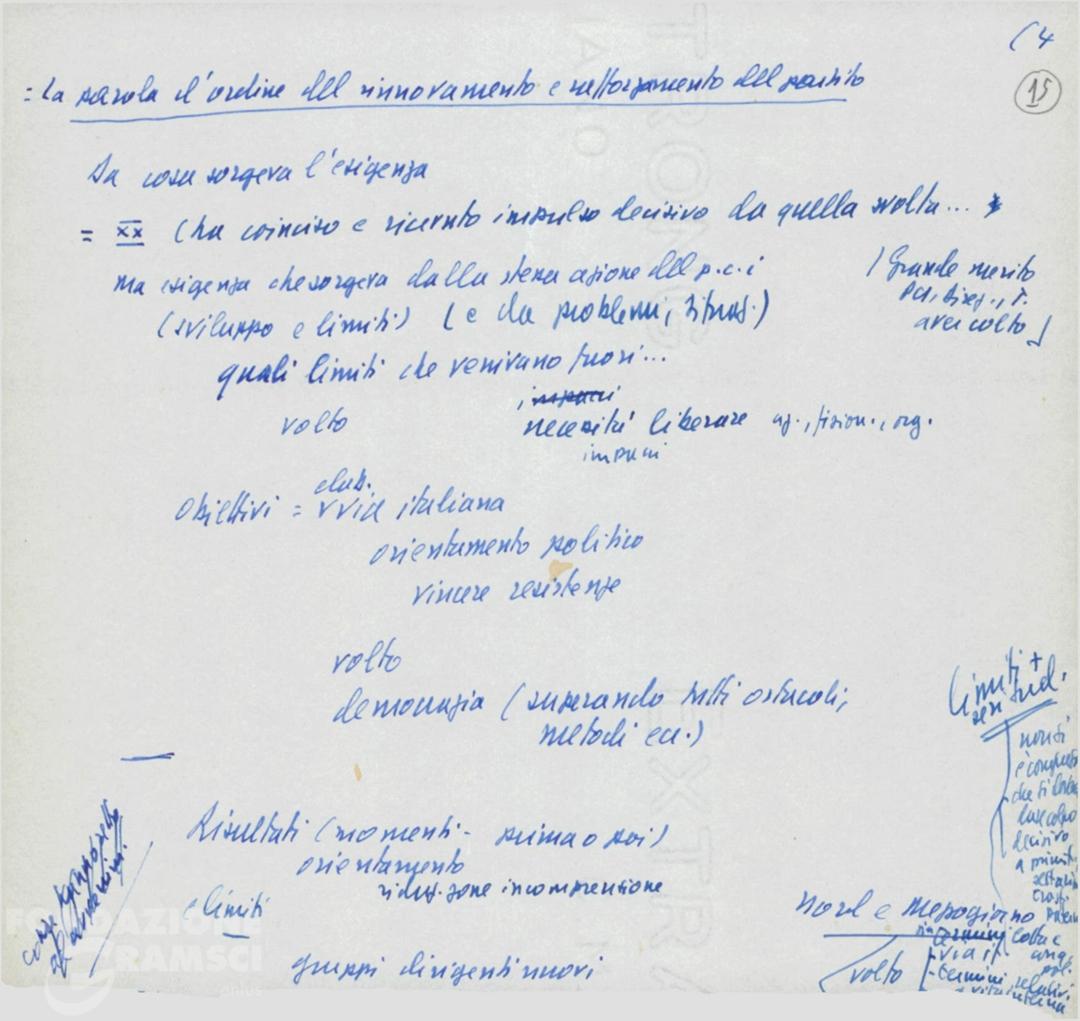 (4
15
= La parola d'ordine del rinnovamento e rafforzamento del partito
Da cosa sorgeva l'esigenza
= xx (ha coinciso e ricevuto impulso decisivo da quella svolta...
ma esigenza che sorgeva dalla stessa azione del p.c.i
(sviluppo e limiti) (e da problemi, situaz.)
(Grande merito
aver colto)
quali limiti che venivano fuori...
volto
impacci
necessità liberare az., fision., org.
impacci
Obiettivi = via italiana
orientamento politico
vincere resistenze
volto
democrazia (superando tutti ostacoli,
metodi ecc.)
limiti +
non si
è compreso
che si doveva
dare colpo
decisivo
Risultati (momenti - prima o poi)
orientamento
riduz. zone incomprensione
e limiti
gruppi dirigenti nuovi
Nord e Mezzogiorno
in termini
- via it.
volto
- termini
FONDAZIONE
GRAMSCI